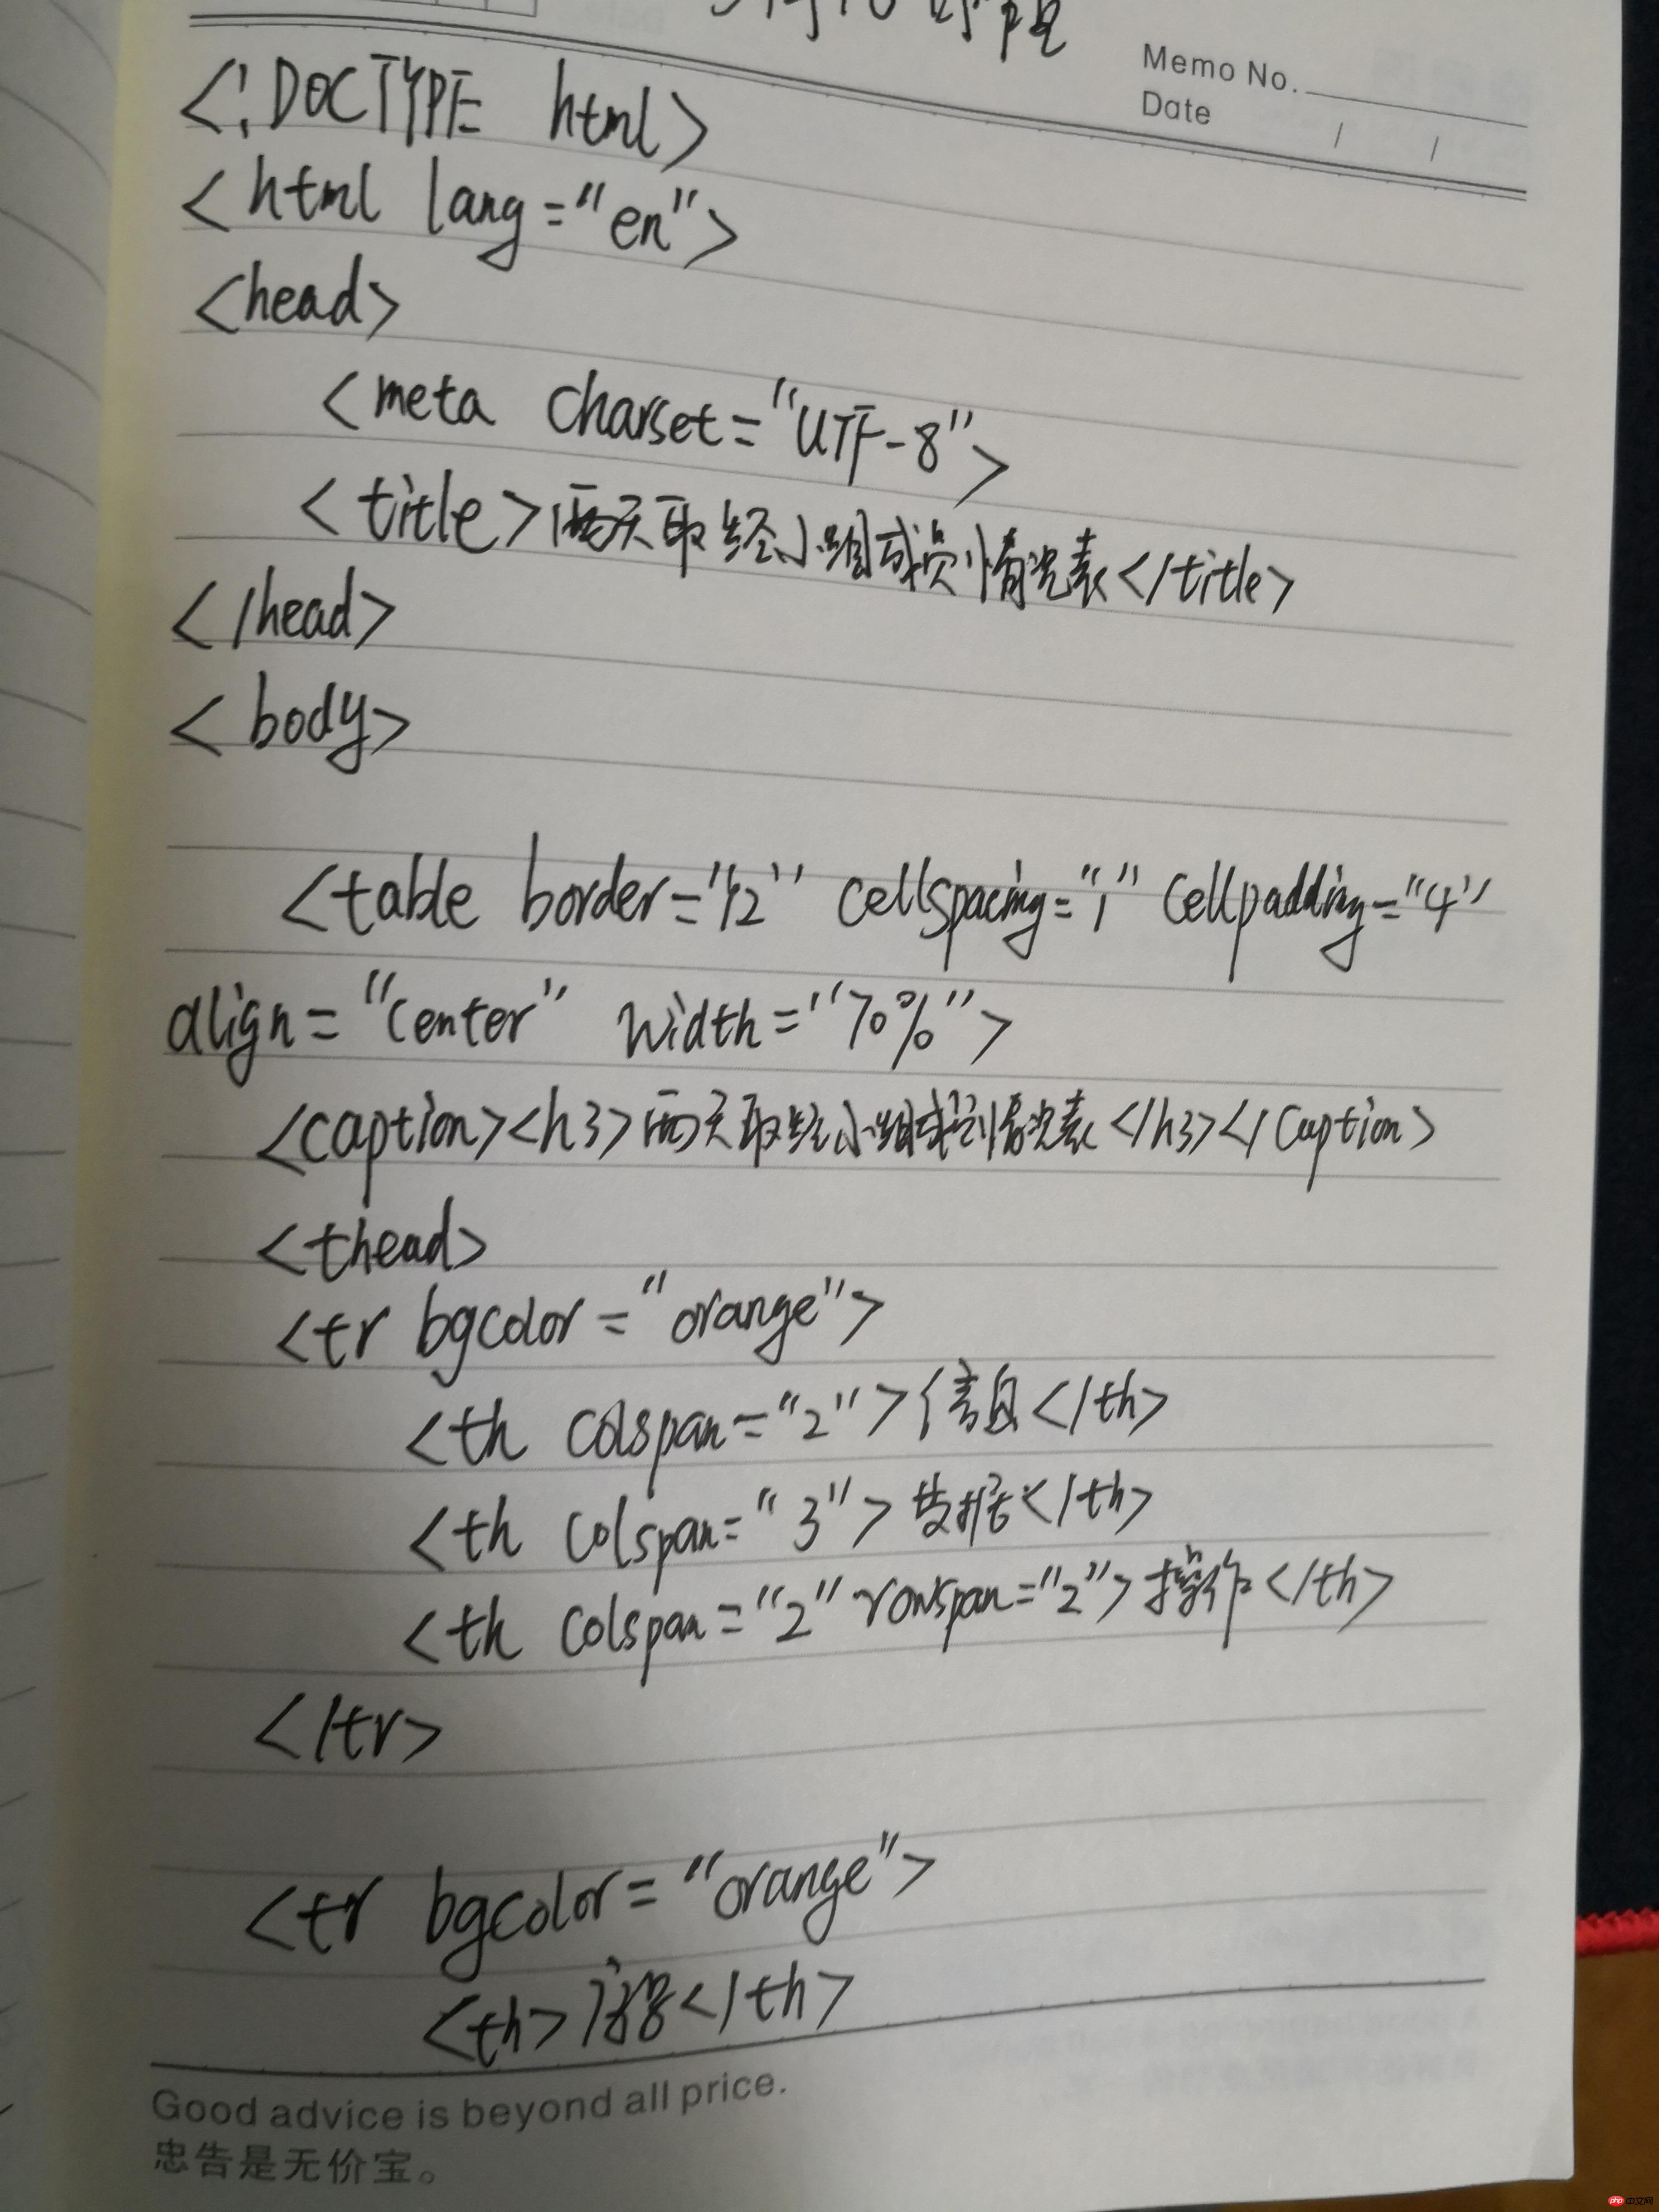 Memo No.
Date / /
<!DOCTYPE html>
<html lang="en">
<head>
<meta charset="UTF-8">
<title>西天取经小组成员情况表</title>
</head>
<body>
<table border="12" cellspacing="1" cellpadding="4"
align="center" width="70%">
<caption><h3>西天取经小组成员情况表</h3></caption>
<thead>
<tr bgcolor="orange">
<th colspan="2">信息</th>
<th colspan="3">数据</th>
<th colspan="2" rowspan="2">操作</th>
</tr>
<tr bgcolor="orange">
<th></th>
Good advice is beyond all price.
忠告是无价宝。
php 中文网